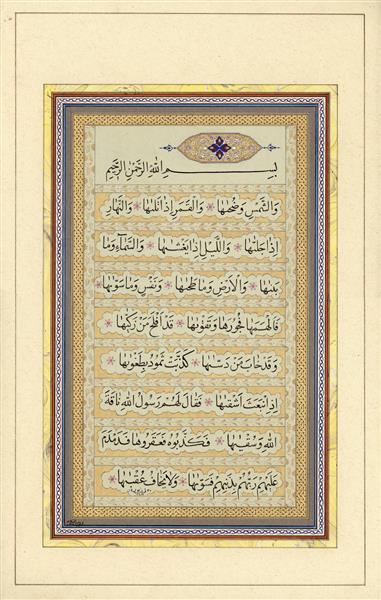 بِسْمِ اللهِ الرَّحْمٰنِ الرَّحِيْمِ
وَالشَّمْسِ وَضُحٰىهَا * وَالْقَمَرِ اِذَا تَلٰىهَا * وَالنَّهَارِ
اِذَا جَلّٰىهَا * وَاللَّيْلِ اِذَا يَغْشٰىهَا * وَالسَّمَآءِ وَمَا
بَنٰىهَا * وَالْاَرْضِ وَمَا طَحٰىهَا * وَنَفْسٍ وَمَا سَوّٰىهَا *
فَاَلْهَمَهَا فُجُورَهَا وَتَقْوٰىهَا * قَدْ اَفْلَحَ مَنْ زَكّٰىهَا *
وَقَدْ خَابَ مَنْ دَسّٰىهَا * كَذَّبَتْ ثَمُودُ بِطَغْوٰىهَا *
اِذِ انْبَعَثَ اَشْقٰىهَا * فَقَالَ لَهُمْ رَسُولُ اللهِ نَاقَةَ
اللهِ وَسُقْيٰهَا * فَكَذَّبُوهُ فَعَقَرُوهَا فَدَمْدَمَ
عَلَيْهِمْ رَبُّهُمْ بِذَنْبِهِمْ فَسَوّٰىهَا * وَلَا يَخَافُ عُقْبٰىهَا *